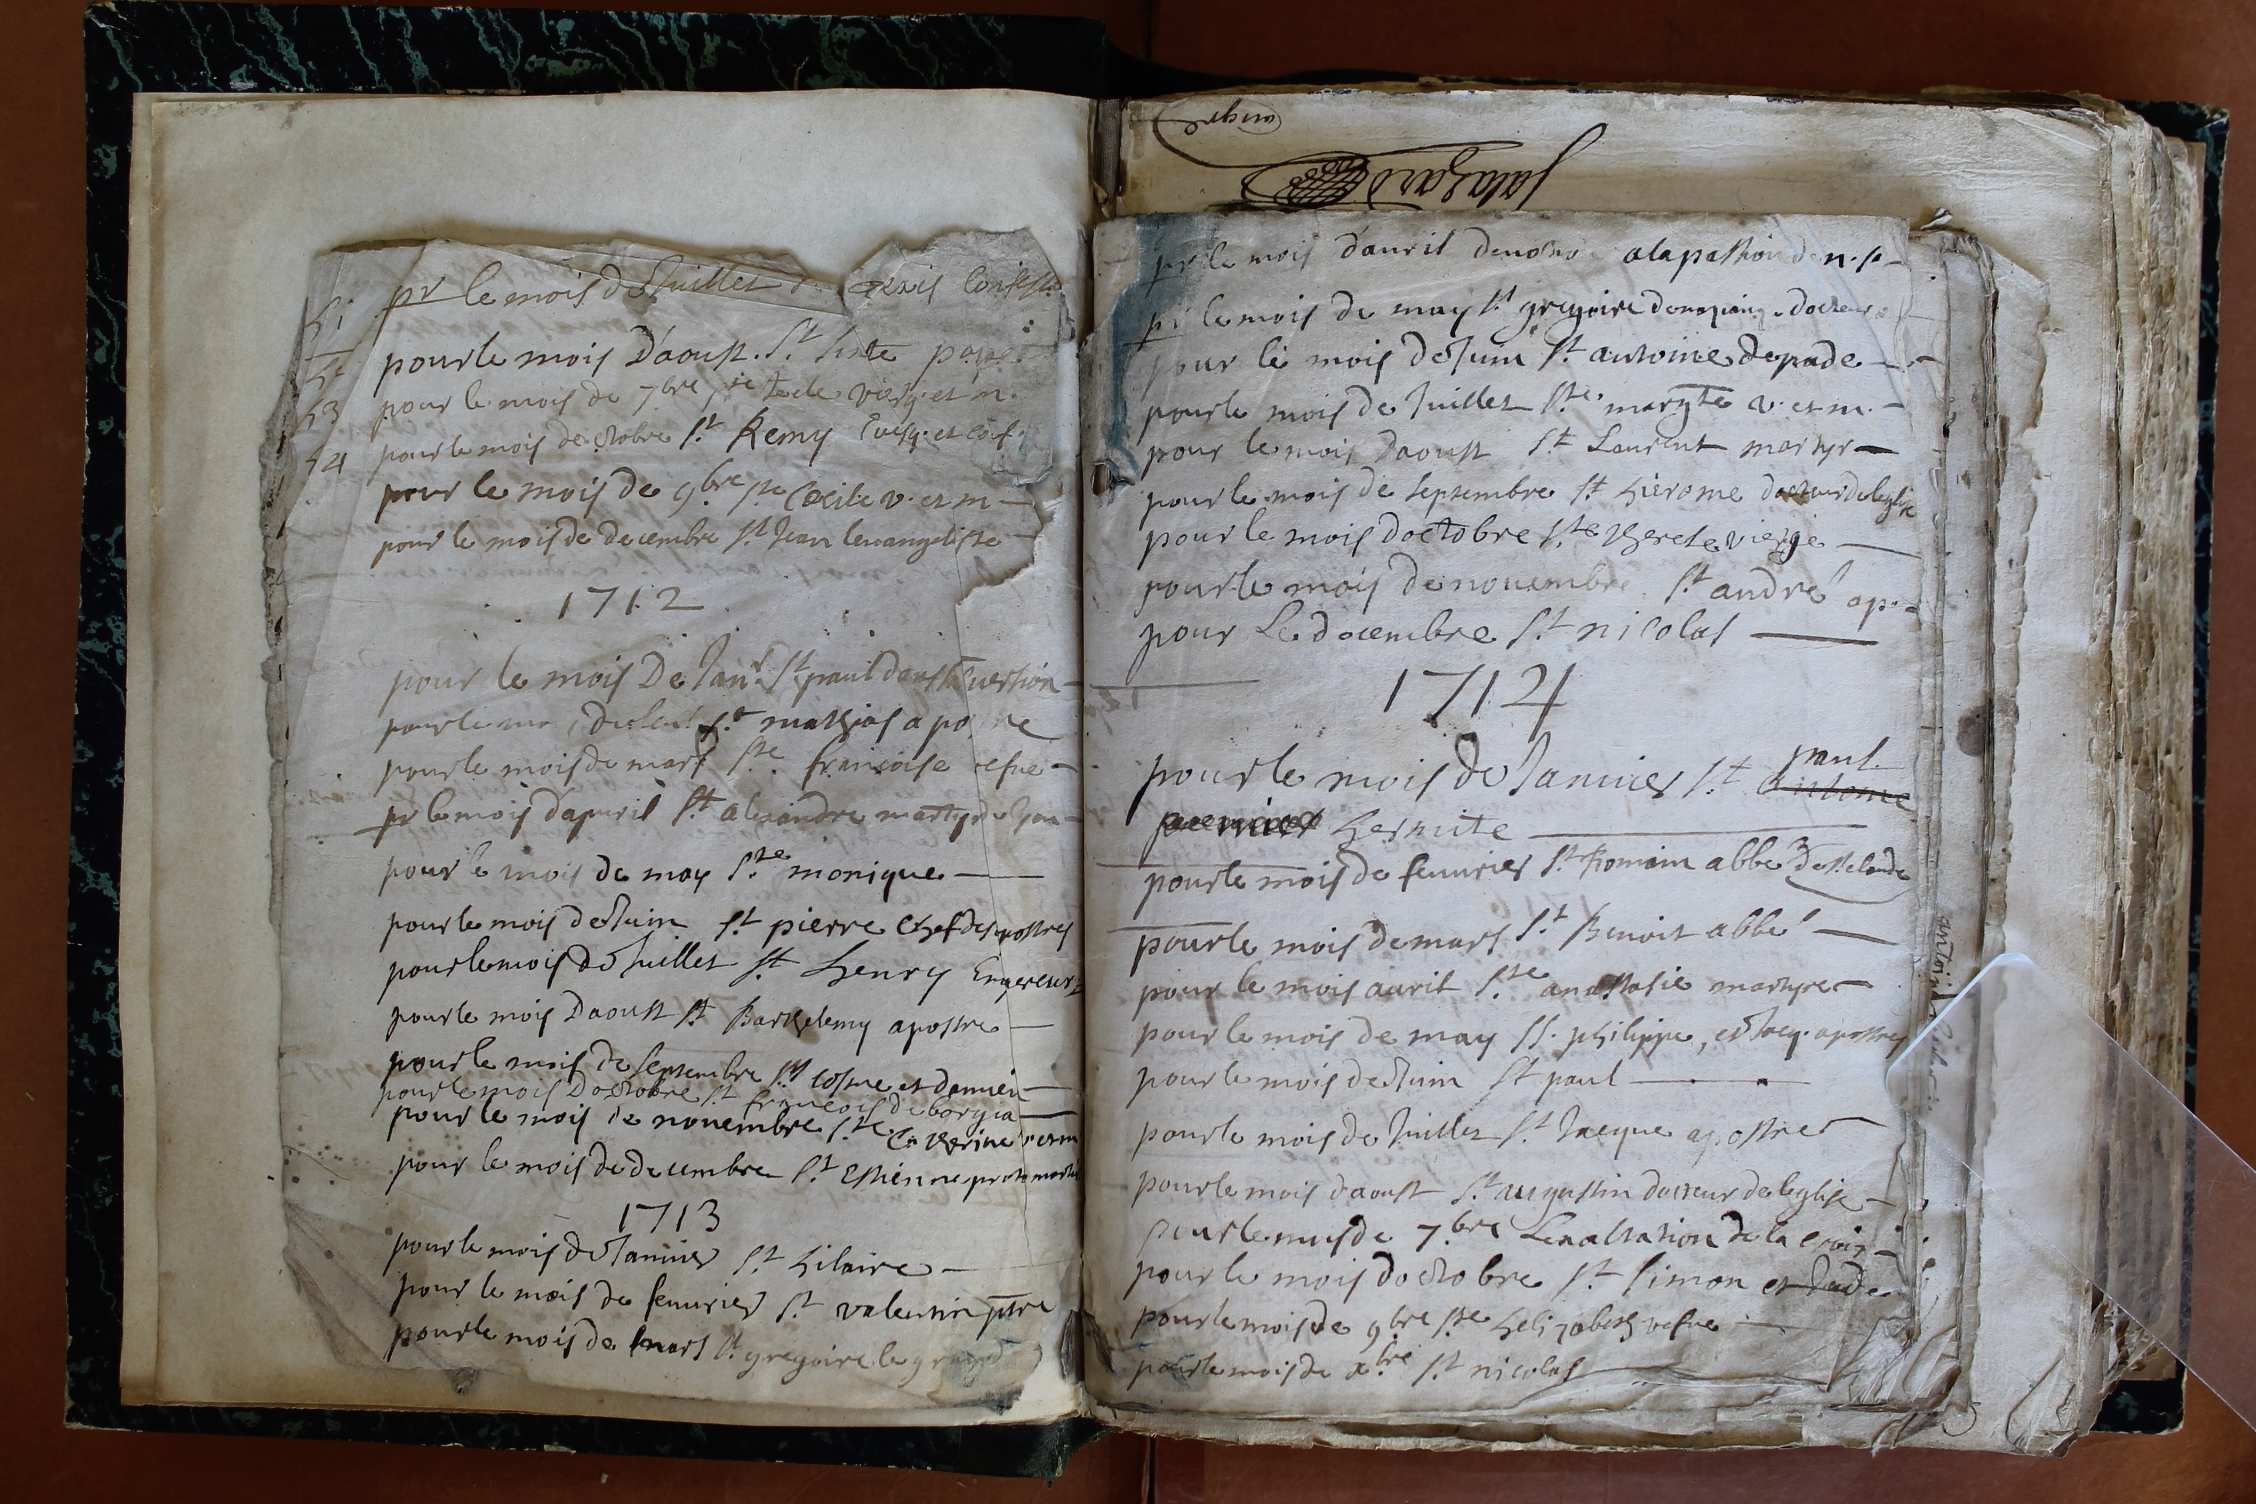 pr le mois de Juillet St alexis confess
pour le mois D'aoust. St Sixte pape
pour le mois de 7bre Ste tecle vierg. et m.
pour le mois doctobre St Remy Evesq. et conf.
pour le mois de 9bre Ste Cecile v. et m
pour le mois de decembre St Jean levangeliste
1712
pour le mois De Janr St paul dans sa Conversion
pour le mois de St mathias apostre
pour le mois de mars Ste francoise vefue
pr le mois dapuril St alexandre martyr de lyon
pour le mois de may Ste monique
pour le mois de Juin St pierre chef des apostres
pour le mois de Juillet St henry Empereur
pour le mois Daoust St Barthelemy apostre
pour le mois de septembre Sts cosme et damien
pour le mois Doctobre St francois de borgia
pour le mois de novembre Ste Catherine v. et m
pour le mois de decembre St Estienne protomartir
1713
pour le mois de Janvier St hilaire
pour le mois de feuurier St valentin ptre
pour le mois de mars St gregoire le grand
53
54
salazard
pr le mois d'auril a la passion de n. s.
pr le mois de may St gregoire de nazianz. docteur
pour le mois de Juin St antoine de pade
pour le mois de Juillet Ste margte v. et m.
pour le mois daoust St Laurent martyr
pour le mois de septembre St hierome docteur de leglise
pour le mois doctobre Ste therese vierge
pour le mois de novembre St andré ap.
pour Le decembre St nicolas
1714
pour le mois de Janvier St paul
antoine
premier hermite
pour le mois de feuurier St Romain abbé de St claude
pour le mois de mars St Benoit abbé
pour le mois auril Ste anastasie martyre
pour le mois de may SS. philippe, et Jacq. apostres
pour le mois de Juin St paul
pour le mois de Juillet St Jacque apostre
pour le mois d'aoust St augustin docteur de leglise
pour le mois de 7.bre Lexaltation de la croix
pour le mois doctobre St simon et Jude
pour le mois de 9bre Ste helizabeth vefue
pour le mois de xbre St nicolas
antoin